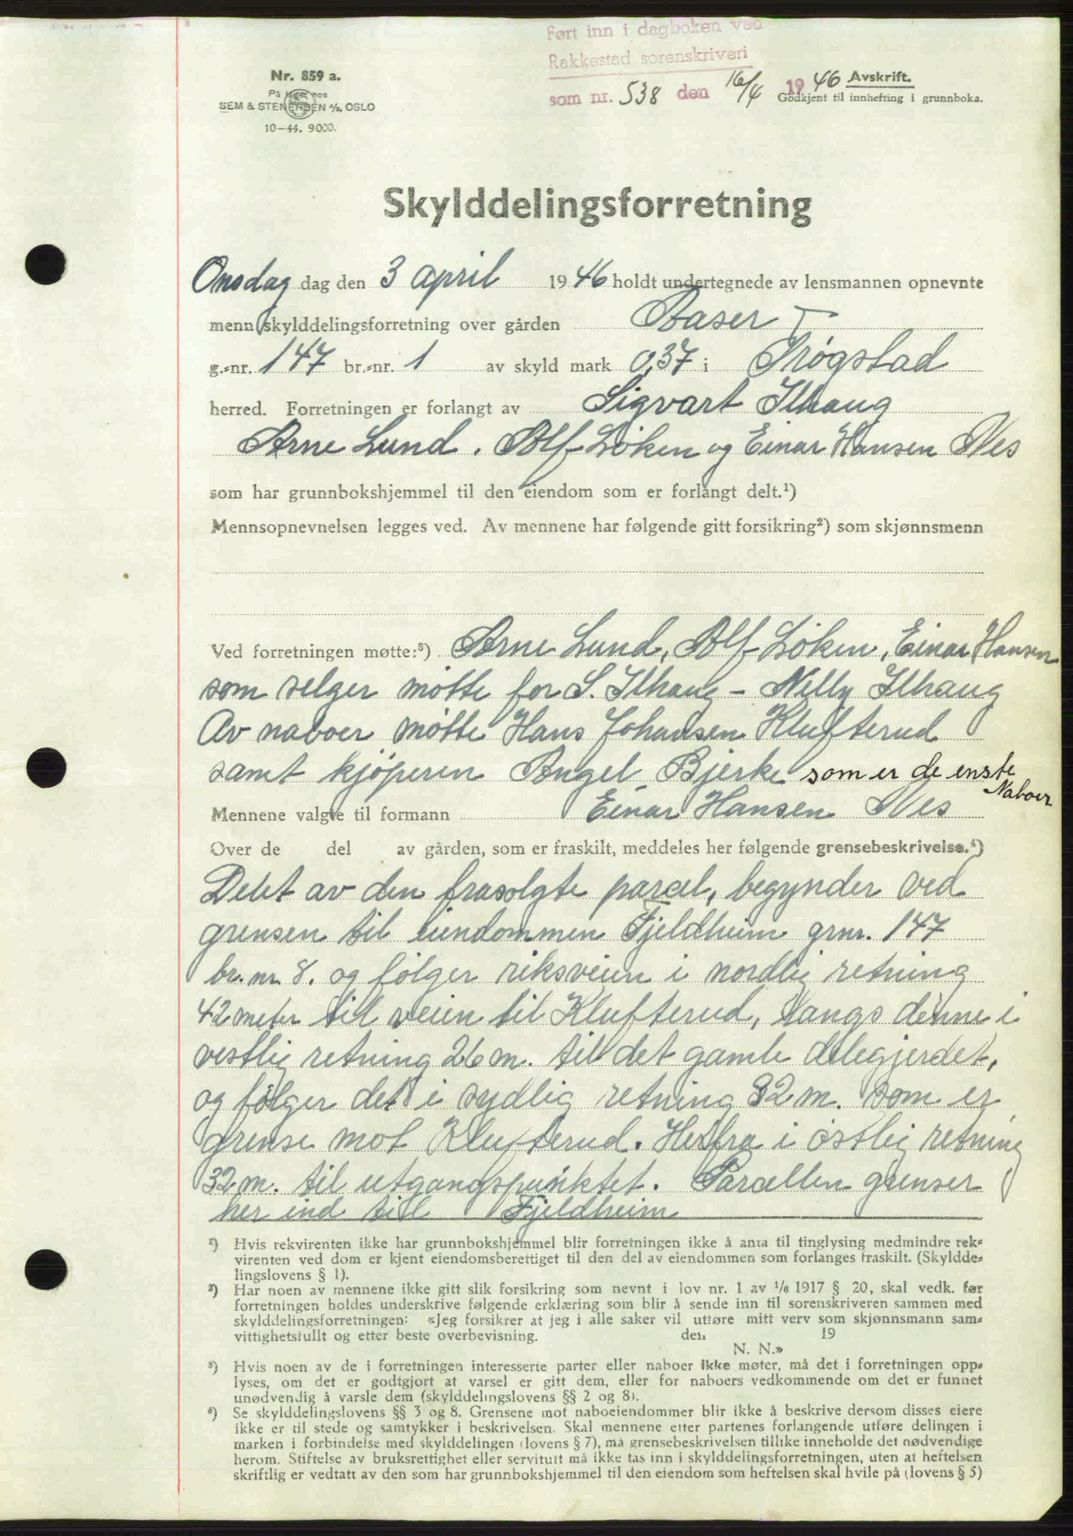 Ført inn i dagboken ved
Rakkestad sorenskriveri
som nr. 538 den 16/4 1946
Avskrift.
Godkjent til innhefting i grunnboka.
Nr. 859 a.
På lager hos
SEM & STENERSEN A/S, OSLO
10—44. 9000.
Skylddelingsforretning
Onsdag dag den 3 april 1946 holdt undertegnede av lensmannen opnevnte
menn skylddelingsforretning over gården Aaser
g.-nr. 147 br.-nr. 1 av skyld mark 0,37 i Trøgstad
herred. Forretningen er forlangt av Sigvart Ilhaug
Arne Lund, Alf Løken og Einar Hansen Nes
som har grunnbokshjemmel til den eiendom som er forlangt delt.¹)
Mennsopnevnelsen legges ved. Av mennene har følgende gitt forsikring²) som skjønnsmenn
Ved forretningen møtte:³) Arne Lund, Alf Løken, Einar Hansen
som selger møtte for S. Ilhaug – Nilly Ilhaug
Av naboer møtte Hans Johansen Klufterud
samt kjøperen Angel Bjerke som er de enste
Naboer
Mennene valgte til formann Einar Hansen Nes
Over de del av gården, som er fraskilt, meddeles her følgende grensebeskrivelse.⁴)
Delet av den frasolgte parcel, begynder ved
grensen til eiendommen Fjeldheim grnr. 147
br. nr. 8. og følger riksveien i nordlig retning
42 meter til veien til Klufterud, langs denne i
vestlig retning 26 m. til det gamle delegjerdet,
og følger det i sydlig retning 32 m. som er
grense mot Klufterud. Herfra i østlig retning
32 m. til utgangspunktet. Parcellen grenser
her ind till Fjeldheim
¹) Hvis rekvirenten ikke har grunnbokshjemmel blir forretningen ikke å anta til tinglysing medmindre rek-
virenten ved dom er kjent eiendomsberettiget til den del av eiendommen som forlanges fraskilt. (Skyldde-
lingslovens § 1).
²) Har noen av mennene ikke gitt slik forsikring som nevnt i lov nr. 1 av 1/6 1917 § 20, skal vedk. før
forretningen holdes underskrive følgende erklæring som blir å sende inn til sorenskriveren sammen med
skylddelingsforretningen: «Jeg forsikrer at jeg i alle saker vil utføre mitt verv som skjønnsmann sam-
vittighetsfullt og etter beste overbevisning. den 19
N. N.»
³) Hvis noen av de i forretningen interesserte parter eller naboer ikke møter, må det i forretningen opp-
lyses, om det er godtgjort at varsel er gitt dem, eller for naboers vedkommende om det er funnet
unødvendig å varsle dem (skylddelingslovens §§ 2 og 8).
⁴) Se skylddelingslovens §§ 3 og 8. Grensene mot naboeiendommer blir ikke å beskrive dersom disses eiere
ikke er til stede og samtykker i beskrivelsen. Skal mennene etter partenes forlangende utføre delingen i
marken i forbindelse med skylddelingen (lovens § 7), må grensebeskrivelsen tillike inneholde det nødvendige
herom. Stiftelse av bruksrettighet eller servitutt må ikke tas inn i skylddelingsforretningen, uten at heftelsen
skriftlig er vedtatt av den som har grunnbokshjemmel til den eiendom som heftelsen skal hvile på (lovens § 5)